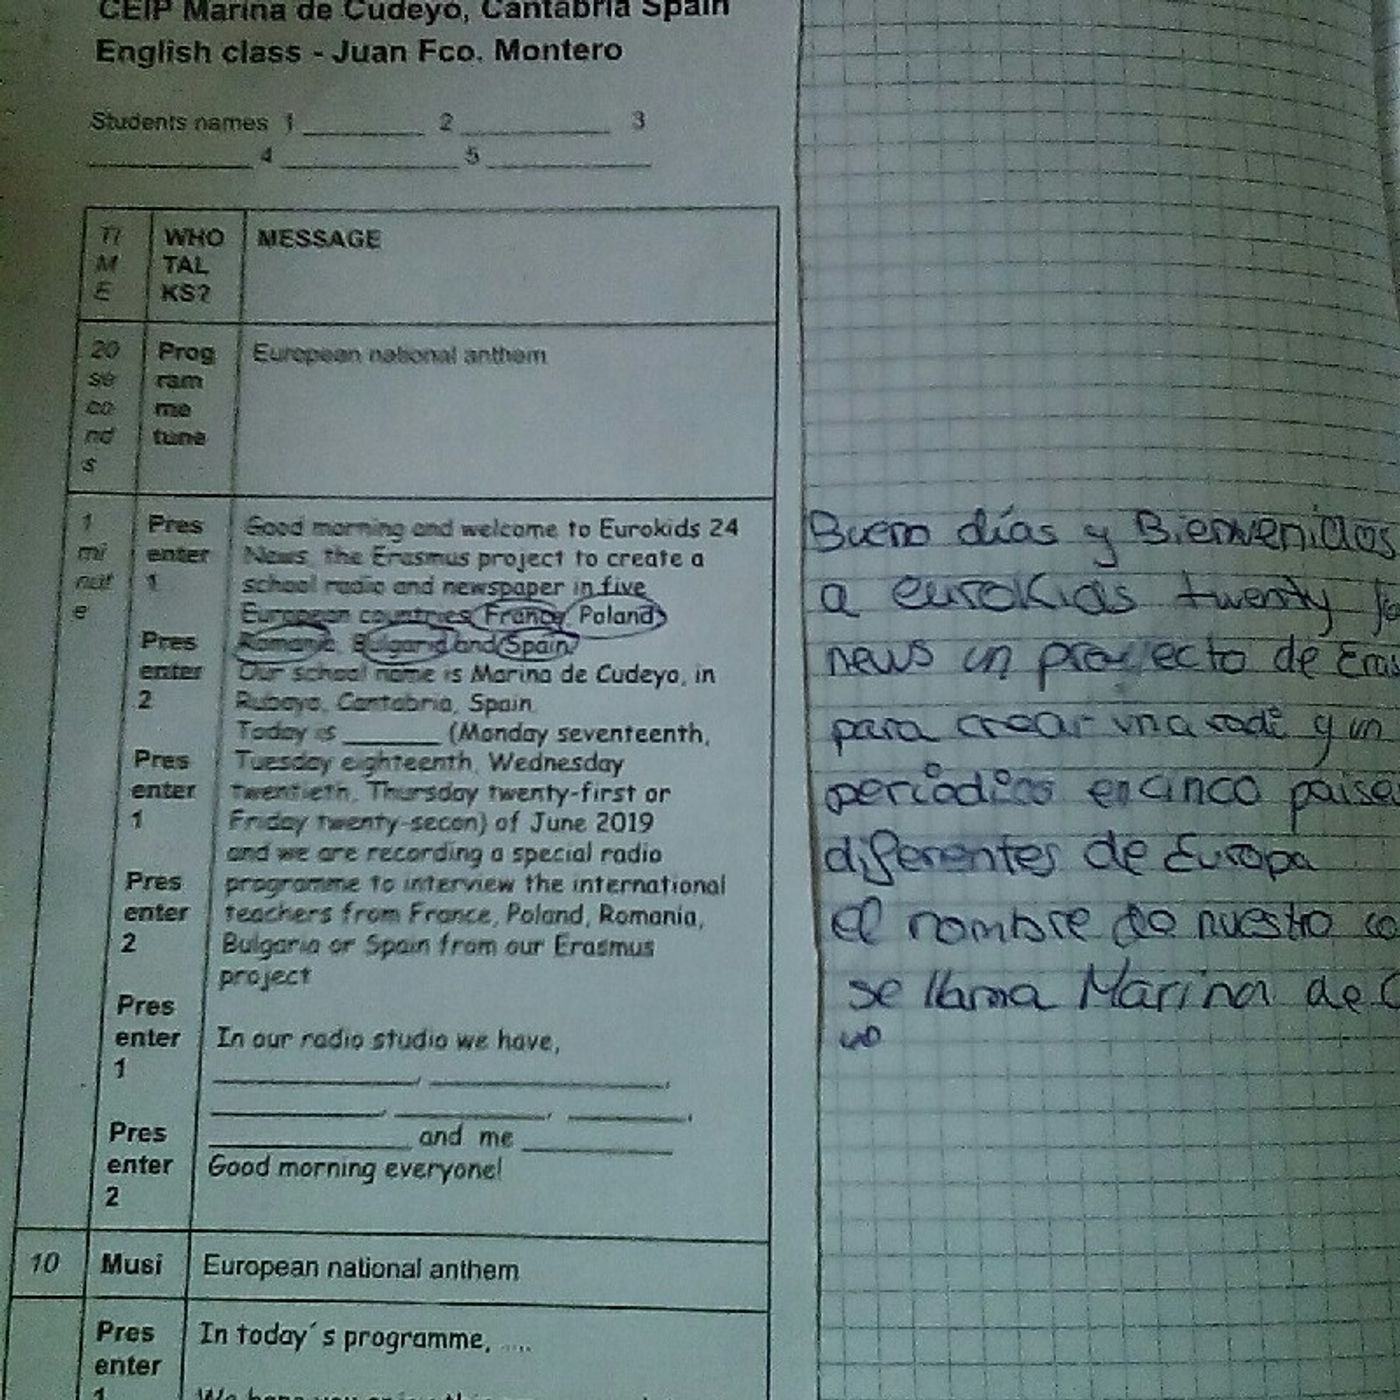 CEIP Marina de Cudeyo, Cantabria Spain
English class - Juan Fco. Montero
Students names 1 __________ 2 ____________ 3
_____________ 4 ______________ 5 _____________
TI
M
E
WHO
TAL
KS?
MESSAGE
20
se
co
nd
s
Prog
ram
me
tune
European national anthem
1
mi
nut
e
Pres
enter
1
Pres
enter
2
Pres
enter
1
Pres
enter
2
Pres
enter
1
Pres
enter
2
Good morning and welcome to Eurokids 24
News, the Erasmus project to create a
school radio and newspaper in five
European countries, France, Poland,
Romania, Bulgaria and Spain.
Our school name is Marina de Cudeyo, in
Rubayo, Cantabria, Spain.
Today is ________ (Monday seventeenth,
Tuesday eighteenth, Wednesday
twentieth, Thursday twenty-first or
Friday twenty-secon) of June 2019
and we are recording a special radio
programme to interview the international
teachers from France, Poland, Romania,
Bulgaria or Spain from our Erasmus
project
In our radio studio we have,
_________________, ____________________,
______________, _____________, __________,
_________________ and me _____________
Good morning everyone!
10
Musi
European national anthem
Pres
enter
1
In today´s programme, ....
We hope you enjoy this
Bueno días y Bienvenidos
a eurokids twenty
news un proyecto de
para crear una radi y un
periodico en cinco paises
diferentes de Europa
el nombre de nuestro
se llama Marina de
yo